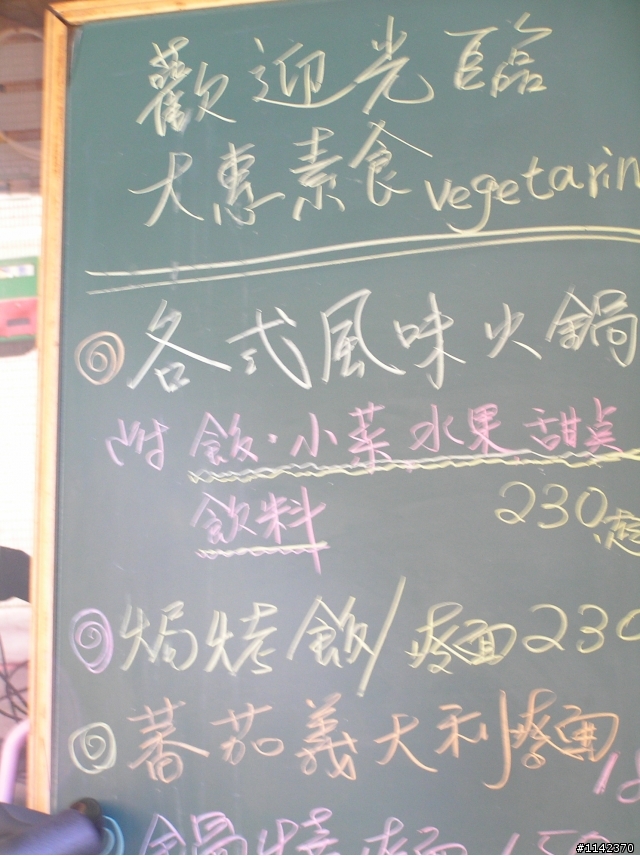 歡迎光臨
大惠素食 vegetarin
各式風味火鍋
附 飯·小菜 水果 甜点
飲料 230起
焗烤飯/麵 230
蕃茄義大利麵
18
鍋燒麵 150
#1142370